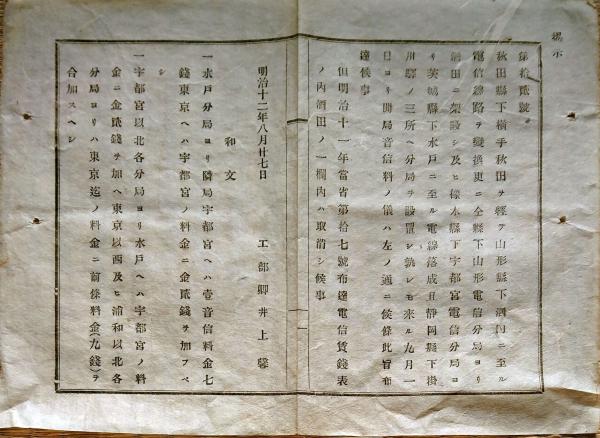 掲示
第拾貳號
秋田縣下横手秋田ヲ經テ山形縣下酒田ニ至ル
電信線路ヲ變換更ニ仝縣下山形電信分局ヨリ
酒田ニ架設シ及ヒ橡木縣下宇都宮電信分局ヨ
リ茨城縣下水戸ニ至ル電線落成且靜岡縣下掛
川驛ノ三所ヘ分局ヲ設置シ孰レモ來ル九月一
日ヨリ開局音信料ノ儀ハ左ノ通ニ候條此旨布
達候事
但明治十一年當省第拾七號布達電信賃錢表
ノ内酒田ノ一欄内ハ取消シ候事
明治十二年八月廿七日 工部卿井上馨
和文
一水戸分局ヨリ隣局宇都宮ヘハ壹音信料金七
錢東京ヘハ宇都宮ノ料金ニ金貳錢ヲ加フヘ
シ
一宇都宮以北各分局ヨリ水戸ヘハ宇都宮ノ料
金ニ金貳錢ヲ加ヘ東京以西及ヒ浦和以北各
分局ヨリハ東京迄ノ料金ニ前條料金(九錢)ヲ
合加スヘシ